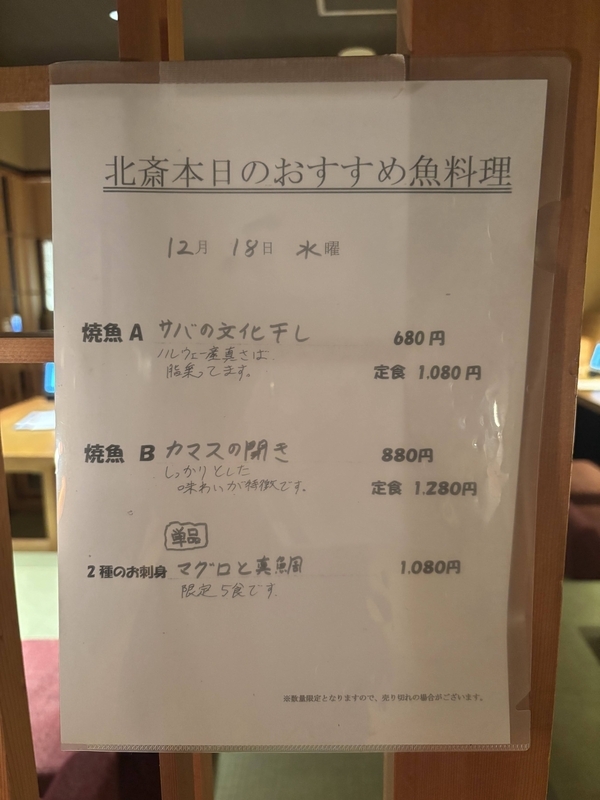 北斎本日のおすすめ魚料理
12月 18日 水曜
焼魚 A サバの文化干し 680円
ノルウェー産真さば
脂乗ってます。 定食 1.080円
焼魚 B カマスの開き 880円
しっかりとした
味わいが特徴です。 定食 1.280円
単品
2種のお刺身 マグロと真鯛 1.080円
限定5食です。
※数量限定となりますので、売り切れの場合がございます。